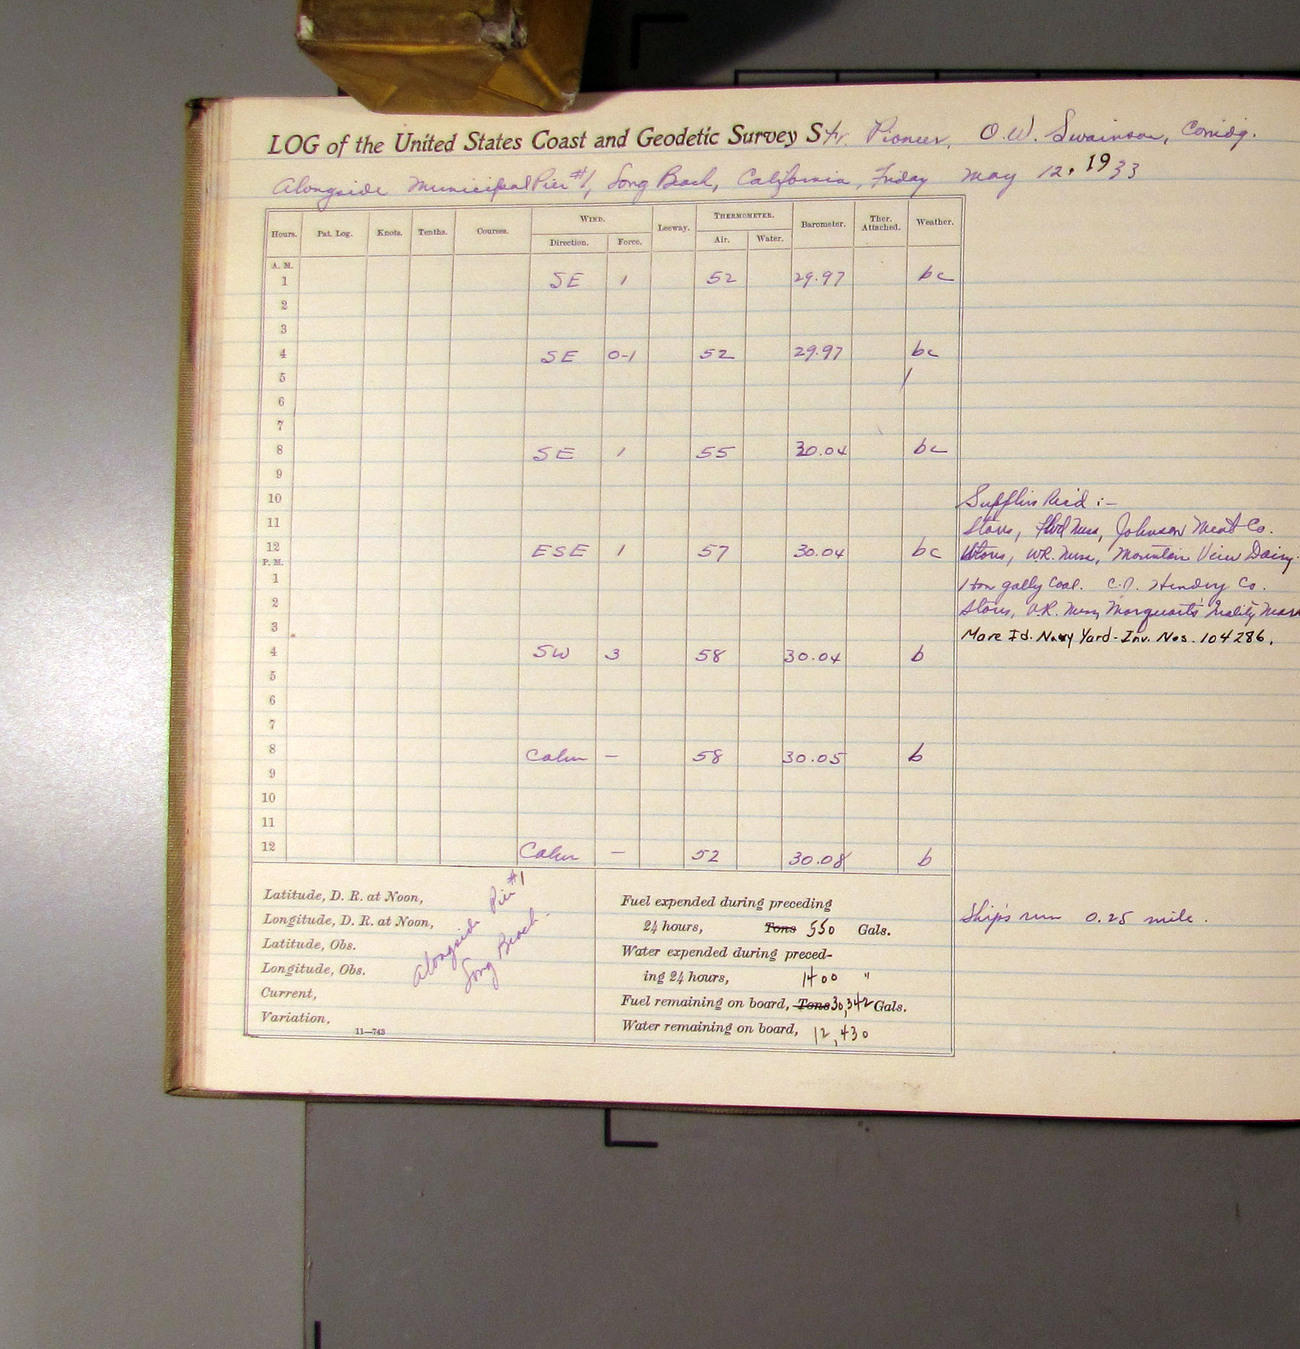 LOG of the United States Coast and Geodetic Survey Str. Pioneer, O.W. Swainson, Comdg.
Alongside Municipal Pier #1, Long Beach, California, Friday May 12, 1933
Hours. Pat. Log. Knots. Tenths. Courses. WIND. Direction. Force. Leeway. THERMOMETER. Air. Water. Barometer. Ther. Attached. Weather.
A. M.
1 SE 1 52 29.97 bc
2
3
4 SE 0-1 52 29.97 bc
5
6
7
8 SE 1 55 30.04 bc
9
10 Supplies Rec'd :-
11 Stores, Mess, Johnson Meat Co.
12 ESE 1 57 30.04 bc Stores, W.R. Mess, Mountain View Dairy.
P. M.
1 1 ton gally Coal. Hendry Co.
2 Stores, W.R. Mess, Marquarts Quality
3 Mare Id. Navy Yard - Inv. Nos. 104286.
4 SW 3 58 30.04 b
5
6
7
8 Calm — 58 30.05 b
9
10
11
12 Calm — 52 30.08 b
Latitude, D. R. at Noon,
Longitude, D. R. at Noon,
Latitude, Obs.
Longitude, Obs.
Current,
Variation,
11—743
Alongside Pier #1
Long Beach.
Fuel expended during preceding
24 hours, Tons 550 Gals.
Water expended during preced-
ing 24 hours, 1400 "
Fuel remaining on board, Tons 30,342 Gals.
Water remaining on board, 12,430
Ship's run 0.25 mile.